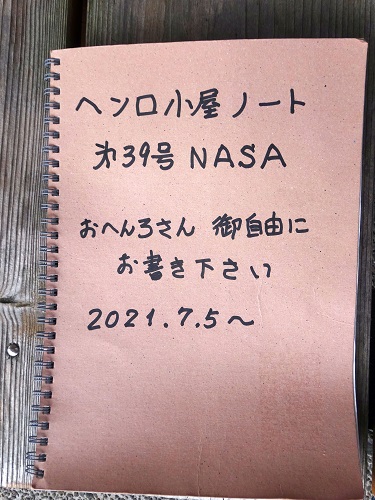 ヘンロ小屋ノート
㐧39号 NASA
おへんろさん 御自由に
お書き下さい
2021.7.5〜